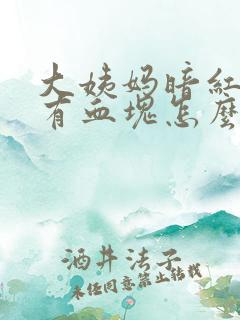 大姨妈暗红
有血块怎么
酒井法子
未经同意禁止转载